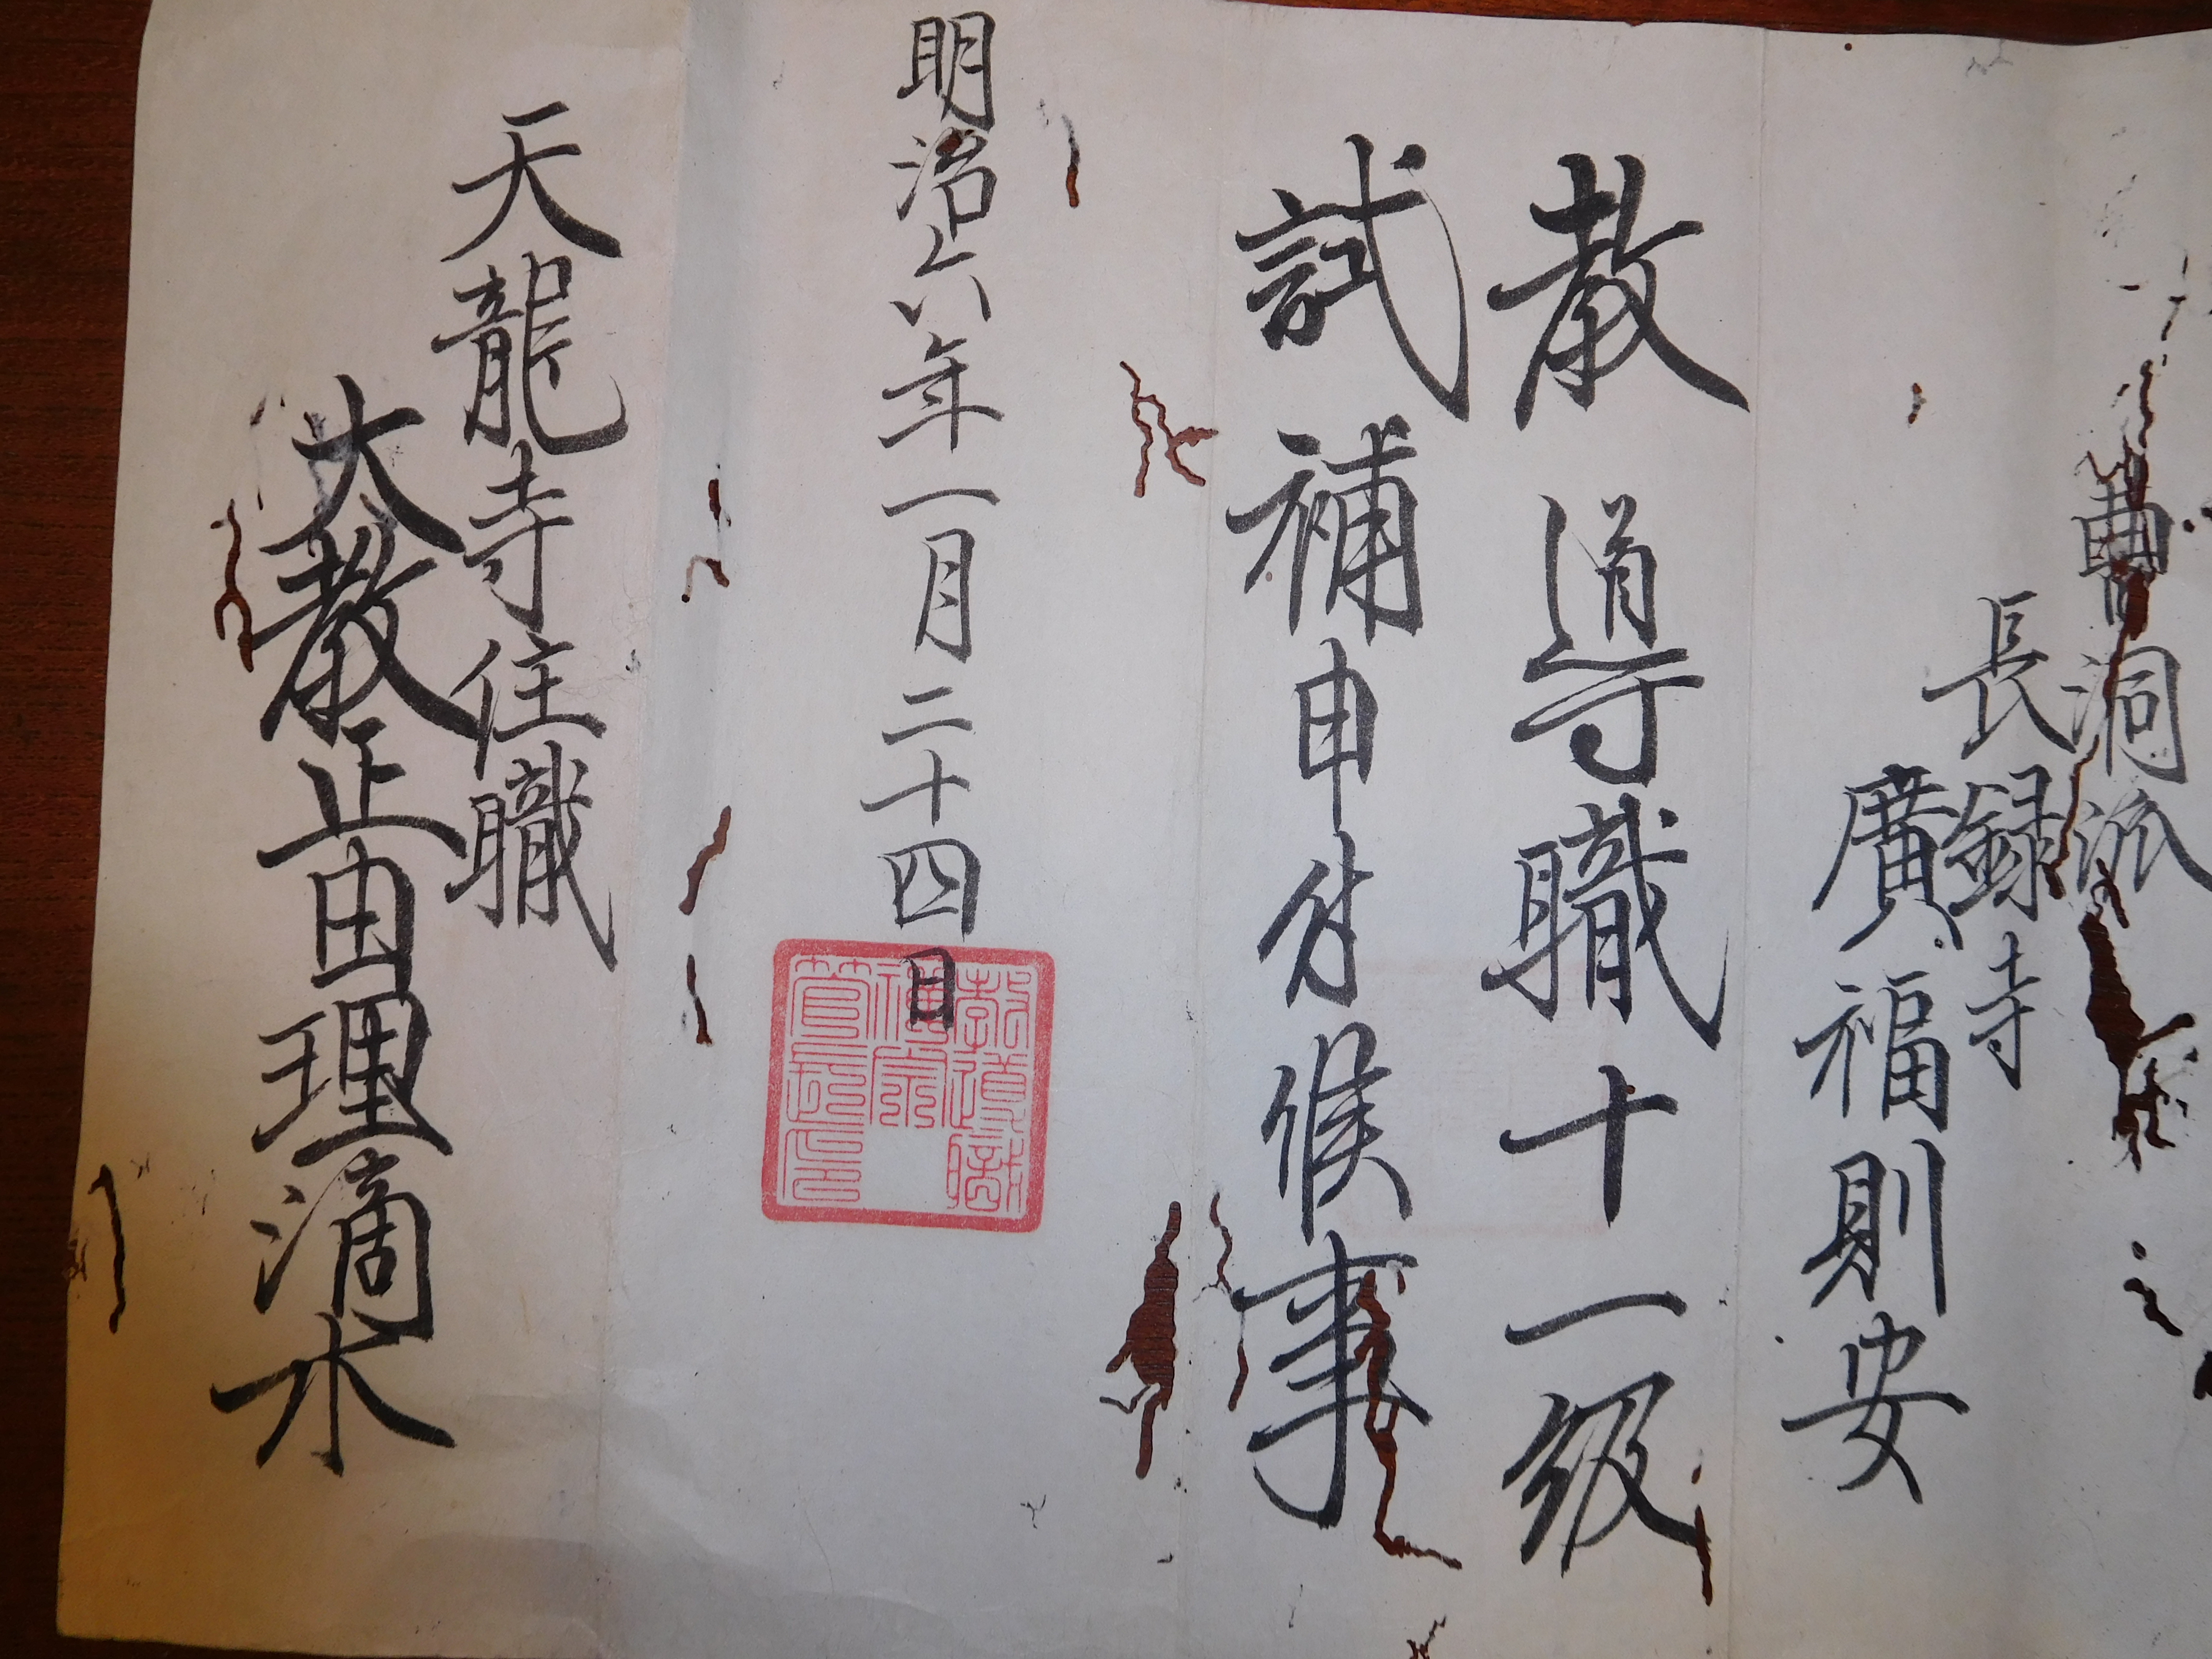 曹洞派
長録寺
廣福則安
教導職十一級
試補申付候事
明治六年一月二十四日
教導職
禪宗
管長印
天龍寺住職
大教正由理滴水